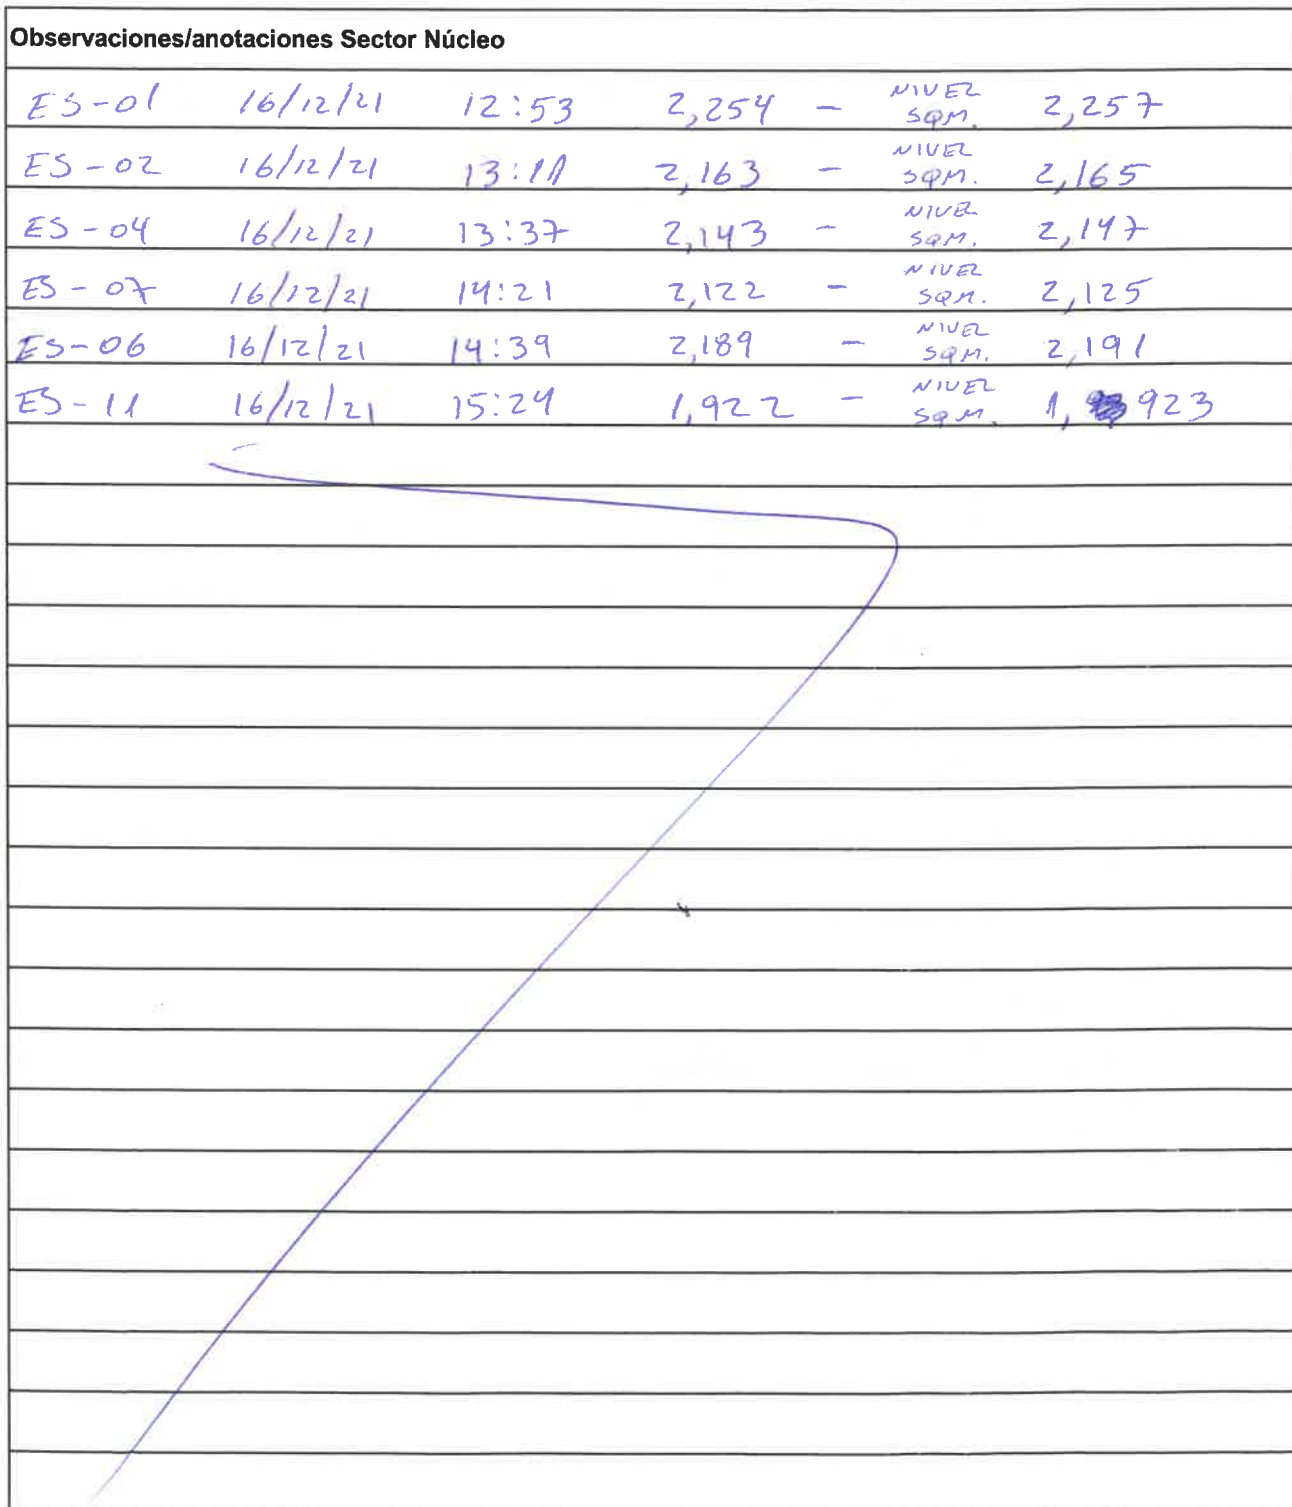 Observaciones/anotaciones Sector Núcleo
ES-01 16/12/21 12:53 2,254 - NIVEL SQM. 2,257
ES-02 16/12/21 13:11 2,163 - NIVEL SQM. 2,165
ES-04 16/12/21 13:37 2,143 - NIVEL SQM. 2,147
ES-07 16/12/21 14:21 2,122 - NIVEL SQM. 2,125
ES-06 16/12/21 14:39 2,189 - NIVEL SQM. 2,191
ES-11 16/12/21 15:24 1,922 - NIVEL SQM. 1,923